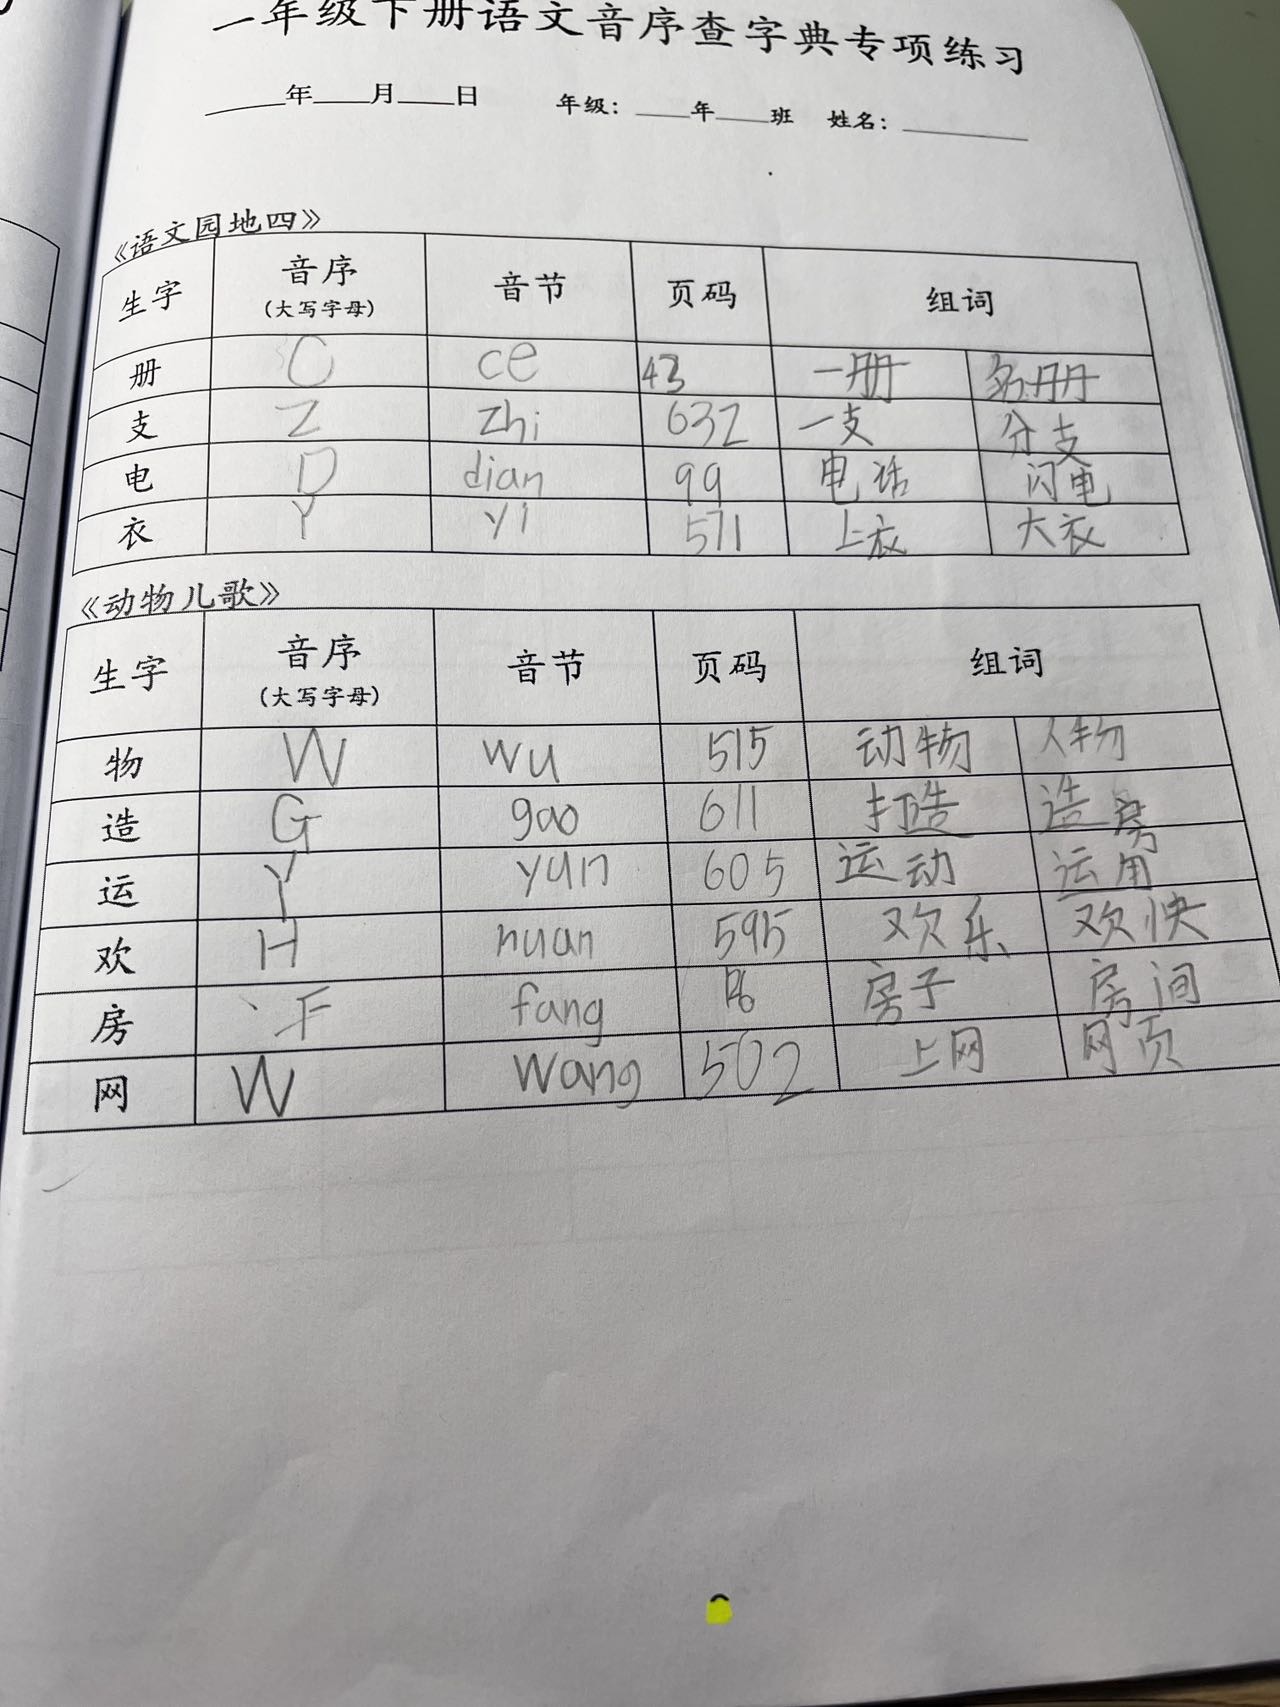 一年级下册语文音序查字典专项练习
____年____月____日 年级：____年____班 姓名：________
《语文园地四》
生字 音序（大写字母） 音节 页码 组词
册 C ce 43 一册 名册
支 Z zhi 632 一支 分支
电 D dian 99 电话 闪电
衣 Y yi 571 上衣 大衣
《动物儿歌》
生字 音序（大写字母） 音节 页码 组词
物 W wu 515 动物 人物
造 G gao 611 打造 造房
运 Y yun 605 运动 运用
欢 H huan 595 欢乐 欢快
房 F fang 房子 房间
网 W wang 502 上网 网页